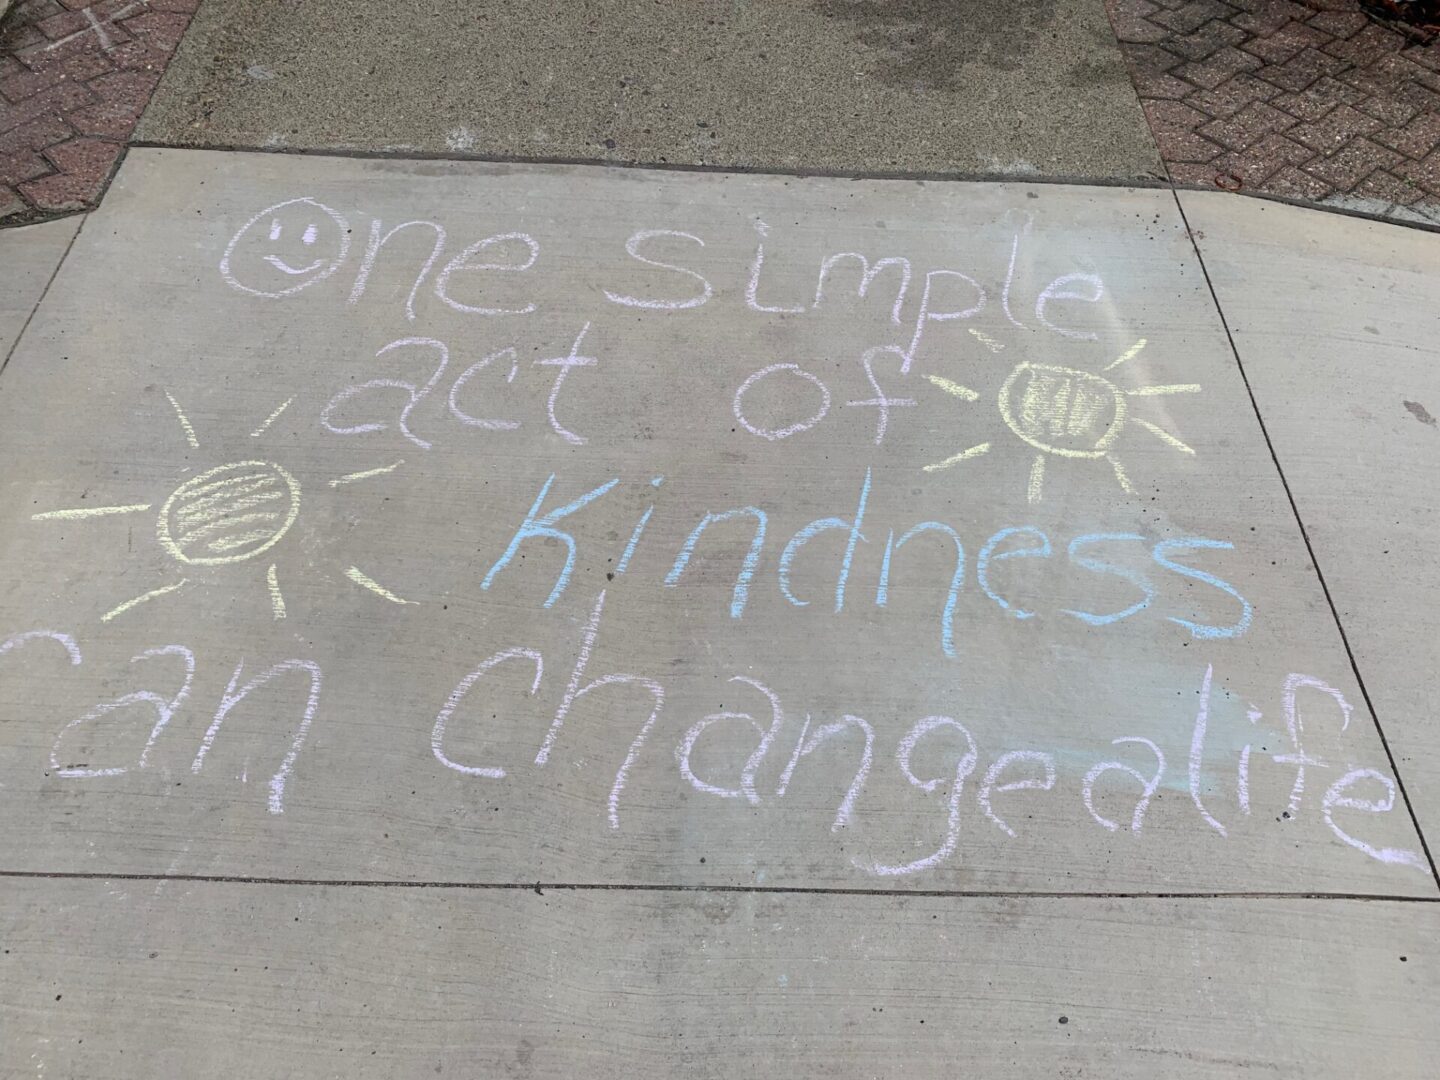 One simple
act of
Kindness
can change a life